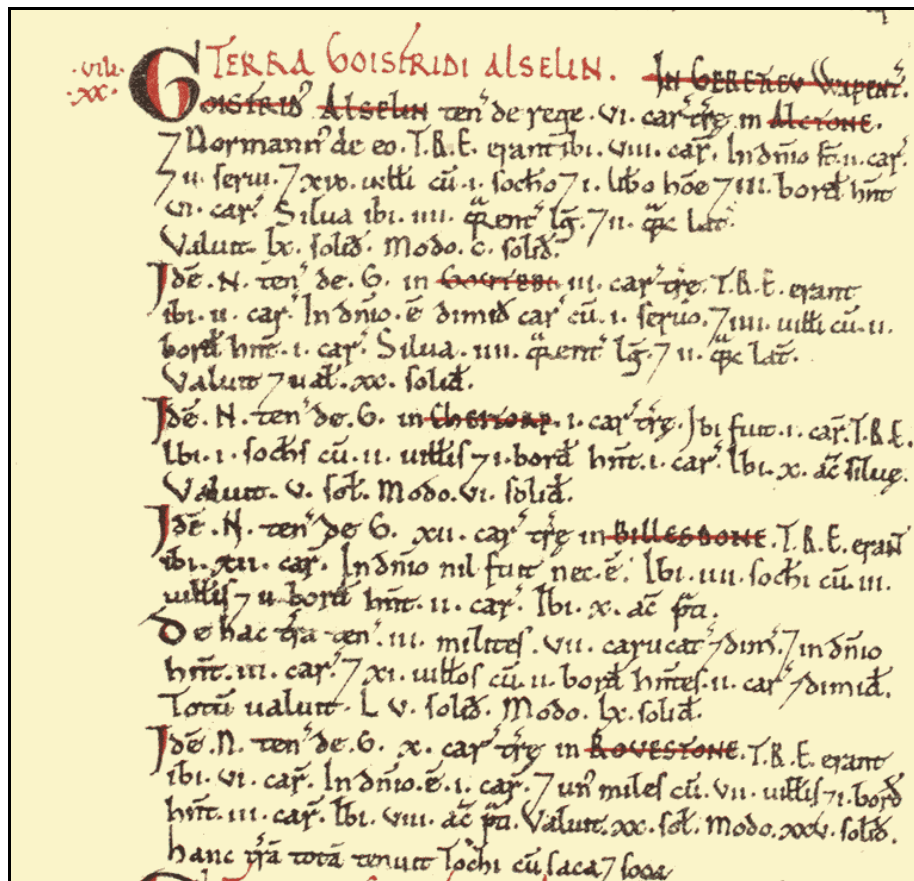 ·XX·VIII· TERRA GOISFRIDI ALSELIN. IN GERETREV Wapent'.
GOISFRID' ALSELIN ten' de rege. vi. car' trę in ALCTONE.
⁊ Normann' de eo. T.R.E. erant ibi. viii. car̃. In dñio st̃. ii. car̃.
⁊ ii. serui. ⁊ xiiii. uiłłi cū. i. socho ⁊ i. libo hōe ⁊ iii. borđ hñt
vi. car̃. Silua ibi. iiii. q̃rent' lḡ. ⁊ ii. q̃ꝛ lat̃.
Valuit. lx. soliđ. Modo. c. soliđ.
Idē. N. ten' de. G. in GOUTEBI. iii. car' trę. T.R.E. erant
ibi. ii. car̃. In dñio. ē dimiđ car̃ cū. i. seruo. ⁊ iiii. uiłłi cū. ii.
borđ hñt. i. car̃. Silua. iiii. q̃rent' lḡ. ⁊ ii. q̃ꝛ lat̃.
Valuit ⁊ uał. xx. soliđ.
Idē. N. ten' de. G. in CHETORP. i. car' trę. Ibi fuit. i. car̃. T.R.E.
Ibi. i. sochs cū. ii. uiłłis ⁊ i. borđ hñt. i. car̃. Ibi. x. ac̃ siluę.
Valuit. v. soł. Modo. vi. soliđ.
Idē. N. ten' de G. xii. car' trę in BILLESDONE. T.R.E. erañt
ibi. xii. car̃. In dñio nil fuit nec. ē. Ibi. iiii. sochi cū. iii.
uiłłis ⁊ ii. borđ hñt. ii. car̃. Ibi. x. ac̃ p̃ti.
De hac tr̃a ten'. iii. milites. vii. carucat' ⁊ dim'. ⁊ in dñio
hñt. iii. car̃. ⁊ xi. uiłłos cū. ii. borđ hñtes. ii. car̃ ⁊ dimiđ.
Totū ualuit. L v. soliđ. Modo. lx. soliđ.
Idē. N. ten' de. G. x. car' trę in ROVESTONE. T.R.E. erant
ibi. vi. car̃. In dñio. ē. i. car̃. ⁊ un' miles cū. vii. uiłłis ⁊ i. borđ
hñt. iii. car̃. Ibi. viii. ac̃ p̃ti. Valuit. xx. soł. Modo. xxv. soliđ.
hanc tr̃a totā tenuit Tochi cū saca ⁊ soca